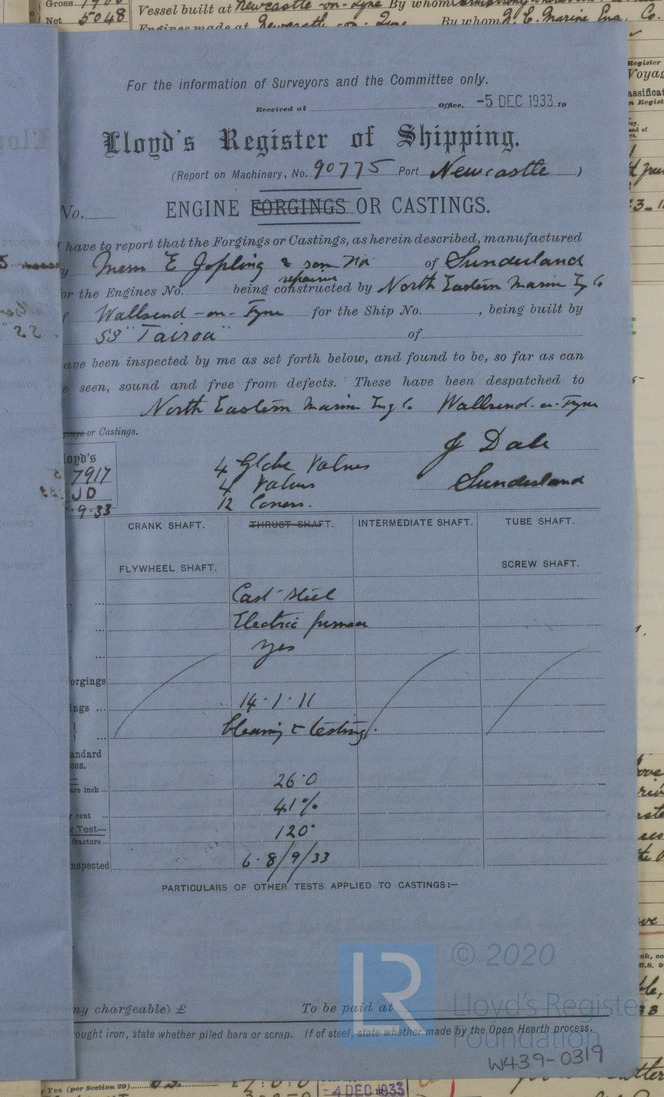 Gross
Net 5048
Vessel built at Newcastle-on-Tyne By whom
Engines made at Newcastle-on-Tyne By whom N.E. Marine Eng. Co.
For the information of Surveyors and the Committee only.
Received at Office, -5 DEC 1933 19
Lloyd's Register of Shipping.
(Report on Machinery, No. 90775 Port Newcastle )
No. ENGINE FORGINGS OR CASTINGS.
have to report that the Forgings or Castings, as herein described, manufactured
Messrs E Jopling & son of Sunderland
repaired
or the Engines No. being constructed by North Eastern Marine Eg Co
Wallsend-on-Tyne for the Ship No. , being built by
SS "Tairoa" of
ave been inspected by me as set forth below, and found to be, so far as can
e seen, sound and free from defects. These have been despatched to
North Eastern Marine Eng Co Wallsend-on-Tyne
or Castings.
J Dale
Sunderland
loyd's
7917
JD
.9.33
4 Globe Valves
4 Valves
12 Covers.
CRANK SHAFT. THRUST SHAFT. INTERMEDIATE SHAFT. TUBE SHAFT.
FLYWHEEL SHAFT. SCREW SHAFT.
Cast steel
Electric furnace
yes
orgings
ings ... 14.1.11
Cleaning & testing.
andard
ons.
are inch ... 26.0
r cent 41%
Test— 120°
fracture
nspected 6.8/9/33
PARTICULARS OF OTHER TESTS APPLIED TO CASTINGS:—
ny chargeable) £ To be paid at
ought iron, state whether piled bars or scrap. If of steel, state whether made by the Open Hearth process.
LR
© 2020
Lloyd's Register
Foundation
W439-0319
Fee (per Section 29)
-4 DEC 1933